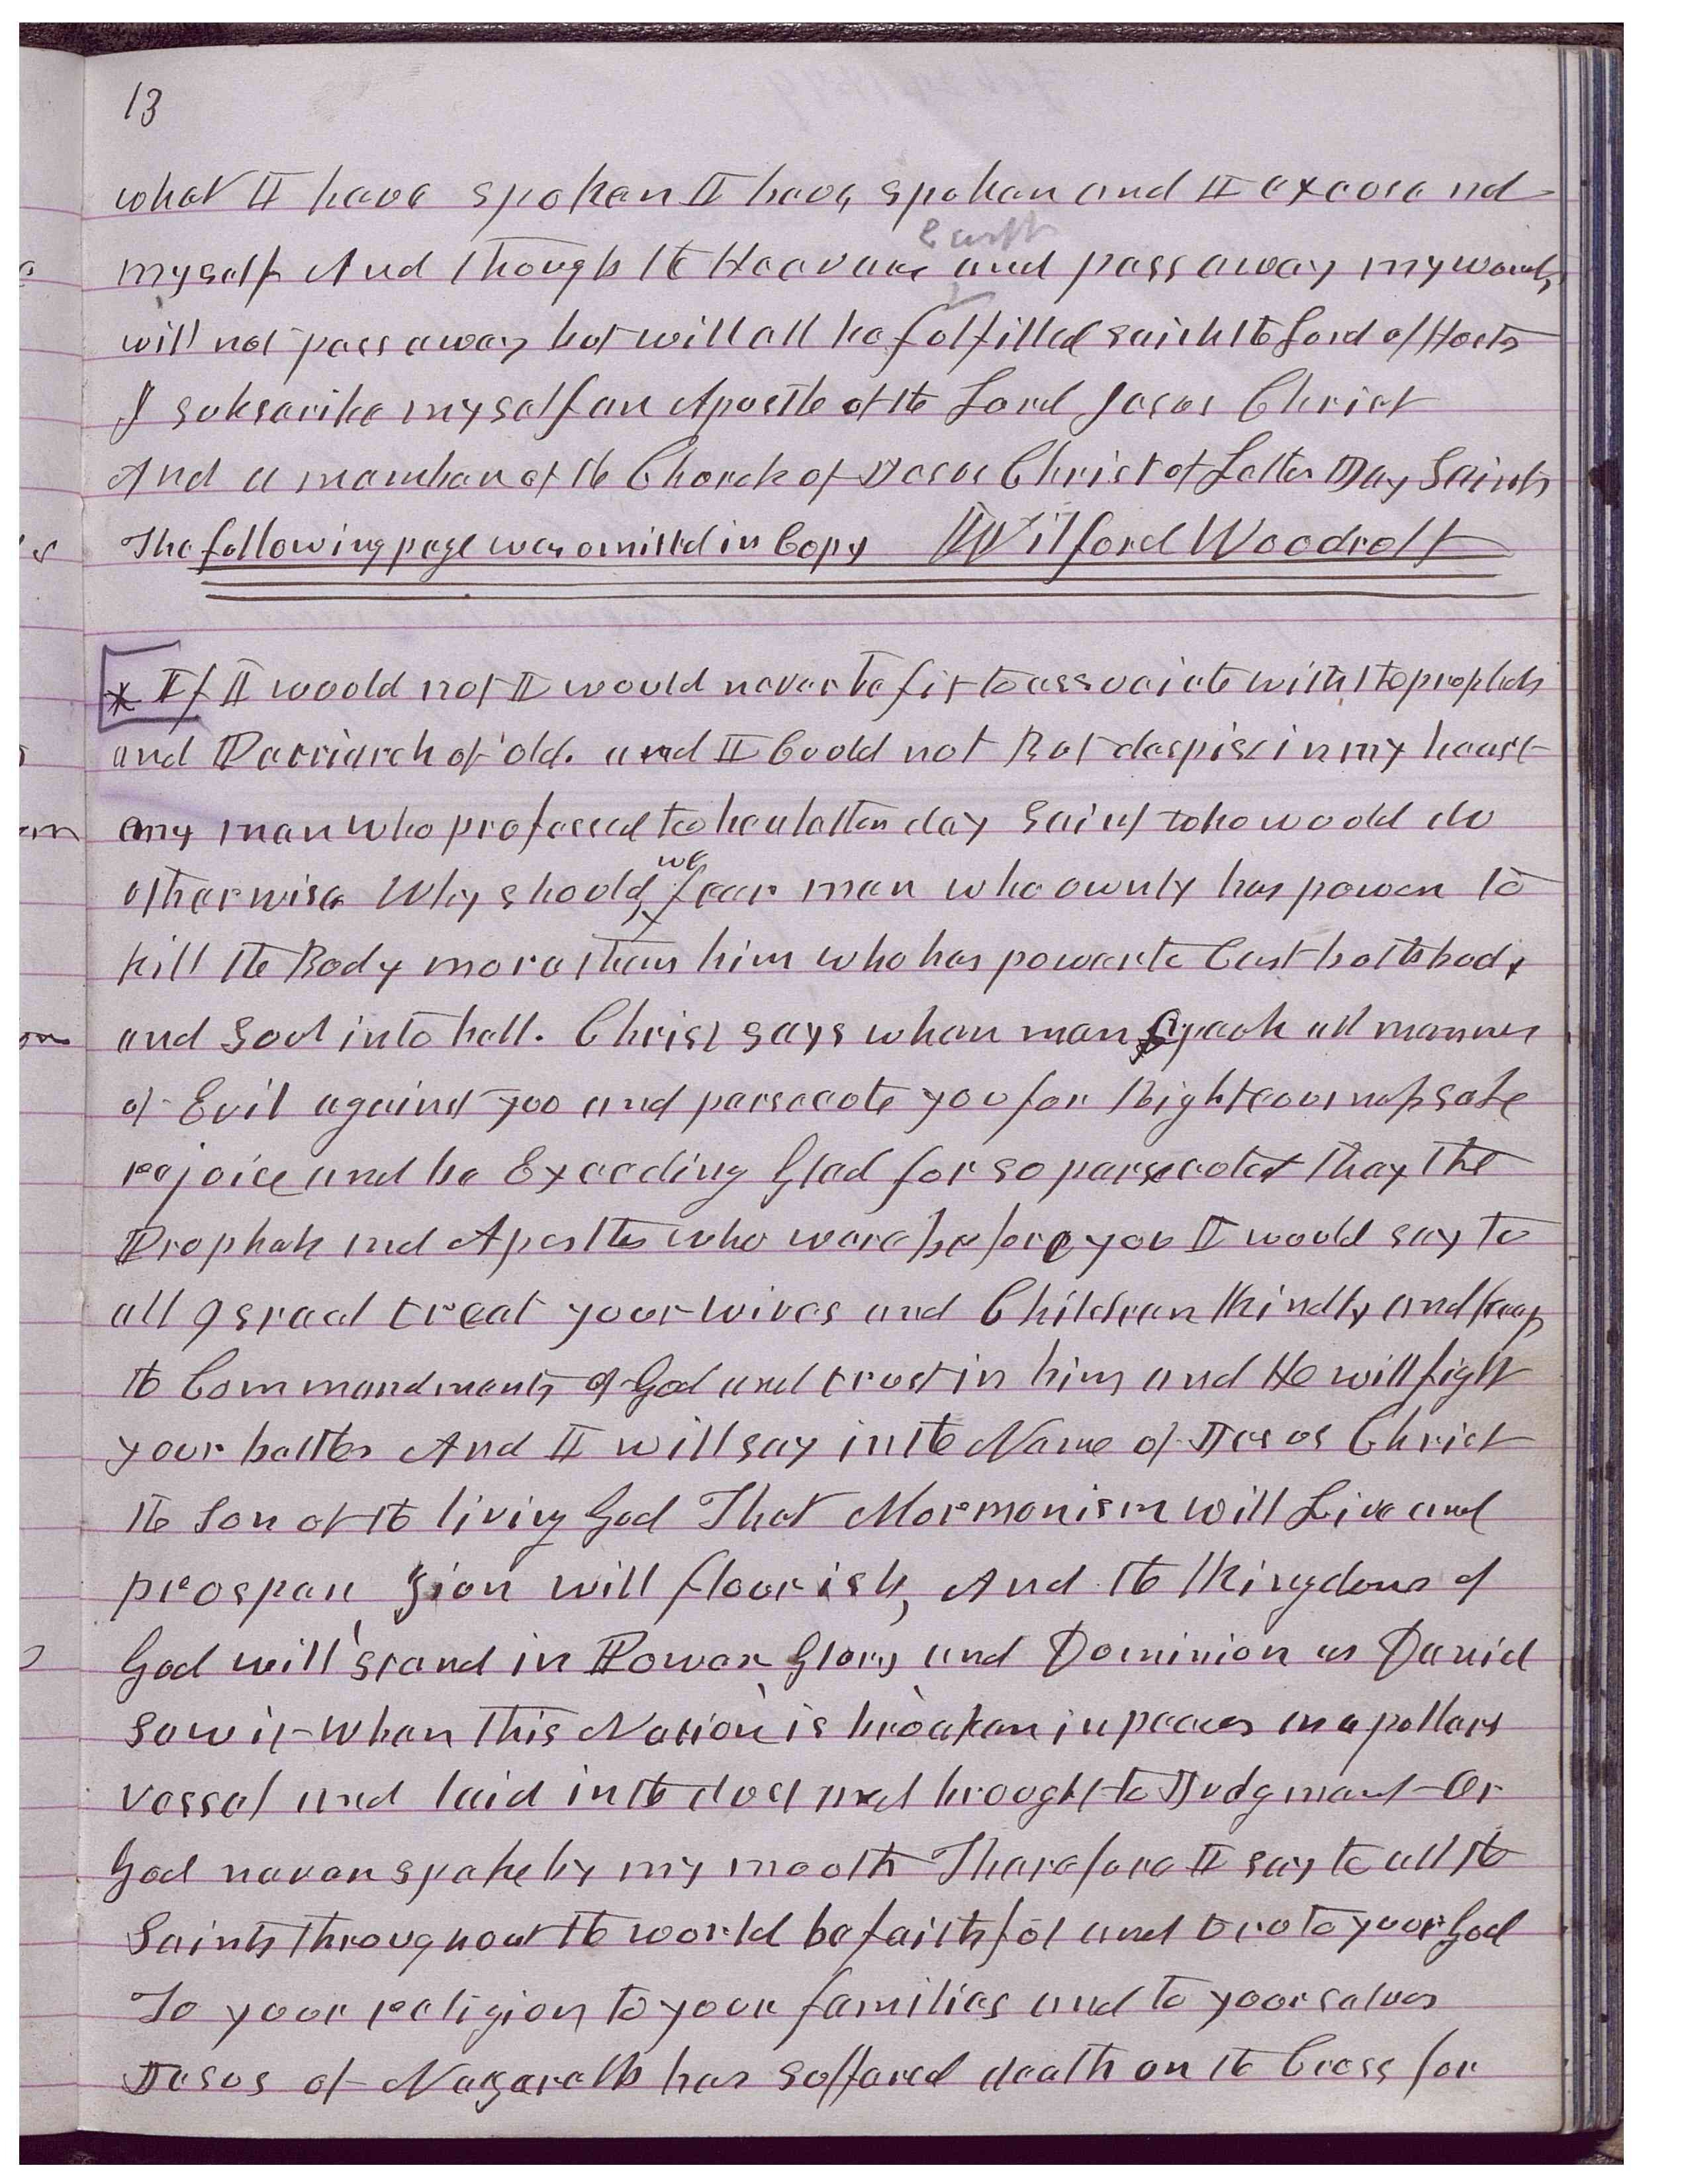 13
what I have spoken I have spoken and I excuse not
Earth
myself And though the Heavens and pass away my words
will not pass away but will all be fulfilled saith the Lord of Hosts
I subscribe myself an Apostle of the Lord Jesus Christ
And a member of the Church of Jesus Christ of Latter Day Saints
The following page was omitted in Copy Wilford Woodruff
* If I would not I would never be fit to associate with the prophets
and Patriarch of old. and I Could not But despise in my heart
any man who professed to be a latter day Saint who would do
we
otherwise Why should fear man who ownly has power to
kill the Body more than him who has power to Cast both body
and Soul into hell. Christ says when men Speak all manner
of Evil against you and persecute you for Righteousness sake
rejoice and be Exceding Glad for so persecuted they the
Prophets and Apostles who were before you I would say to
all Israel treat your wives and Children Kindly and keep
the Commandments of God and trust in him and He will fight
your battles And I will say in the Name of Jesus Christ
the Son of the living God That Mormonism will Live and
prosper Zion will flourish, And the Kingdom of
God will stand in Power Glory and Dominion as Daniel
saw it when this Nation is broaken in peaces as a potters
vessel and laid in the dust and brought to Judgment Or
God never spake by my mouth Therefore I say to all the
Saints throughout the world be faithful and true to your God
To your religion to your families and to yourselves
Jesus of Nazareth has suffered death on the Cross for